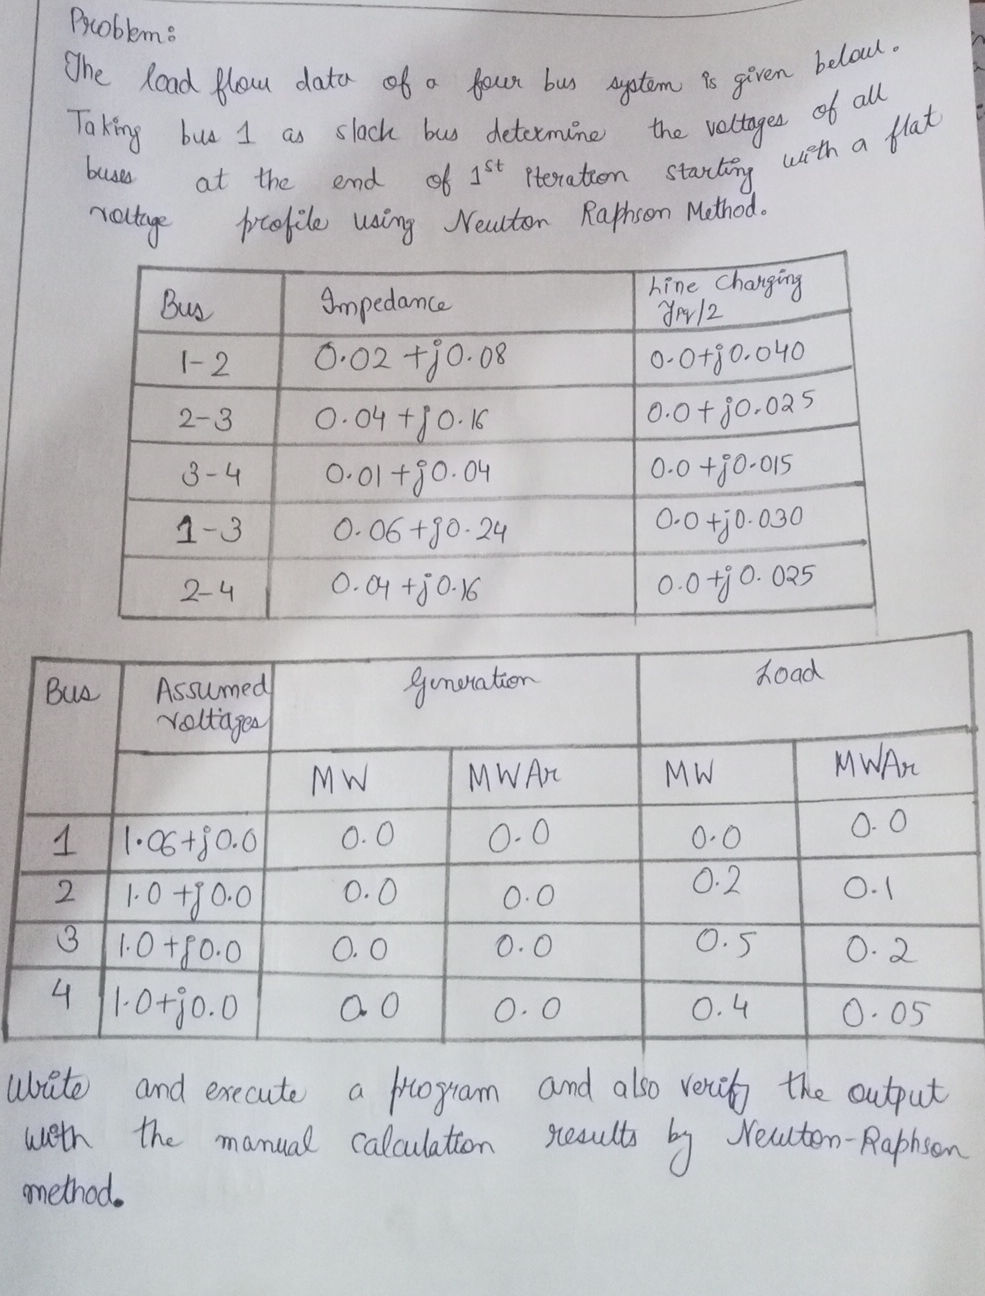 Problem:
The load flow data of a four bus system is given below.
Taking bus 1 as slack bus determine the voltages of all
buses at the end of 1st iteration starting with a flat
voltage profile using Newton Raphson Method.
Bus Impedance Line Charging
Ypq/2
1-2 0.02 +j0.08 0.0+j0.040
2-3 0.04 +j0.16 0.0+j0.025
3-4 0.01+j0.04 0.0+j0.015
1-3 0.06+j0.24 0.0+j0.030
2-4 0.04+j0.16 0.0+j0.025
Bus Assumed Generation Load
voltages
MW MWAr MW MWAr
1 1.06+j0.0 0.0 0.0 0.0 0.0
2 1.0+j0.0 0.0 0.0 0.2 0.1
3 1.0+j0.0 0.0 0.0 0.5 0.2
4 1.0+j0.0 0.0 0.0 0.4 0.05
Write and execute a program and also verify the output
with the manual calculation results by Newton-Raphson
method.